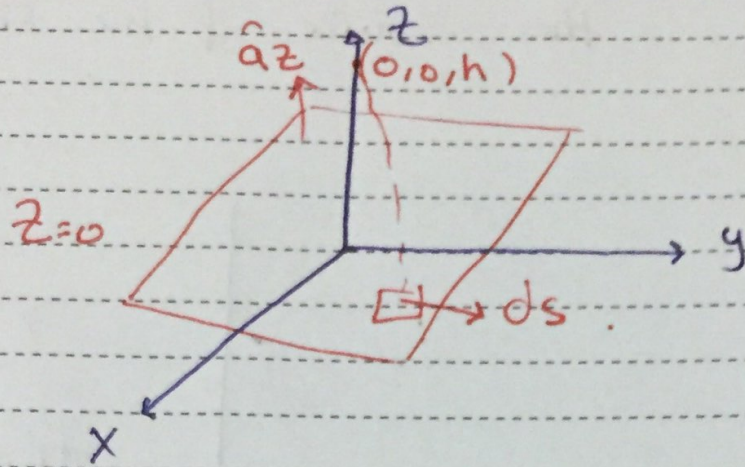 z
âz
(0,0,h)
Z=0
y
ds
x